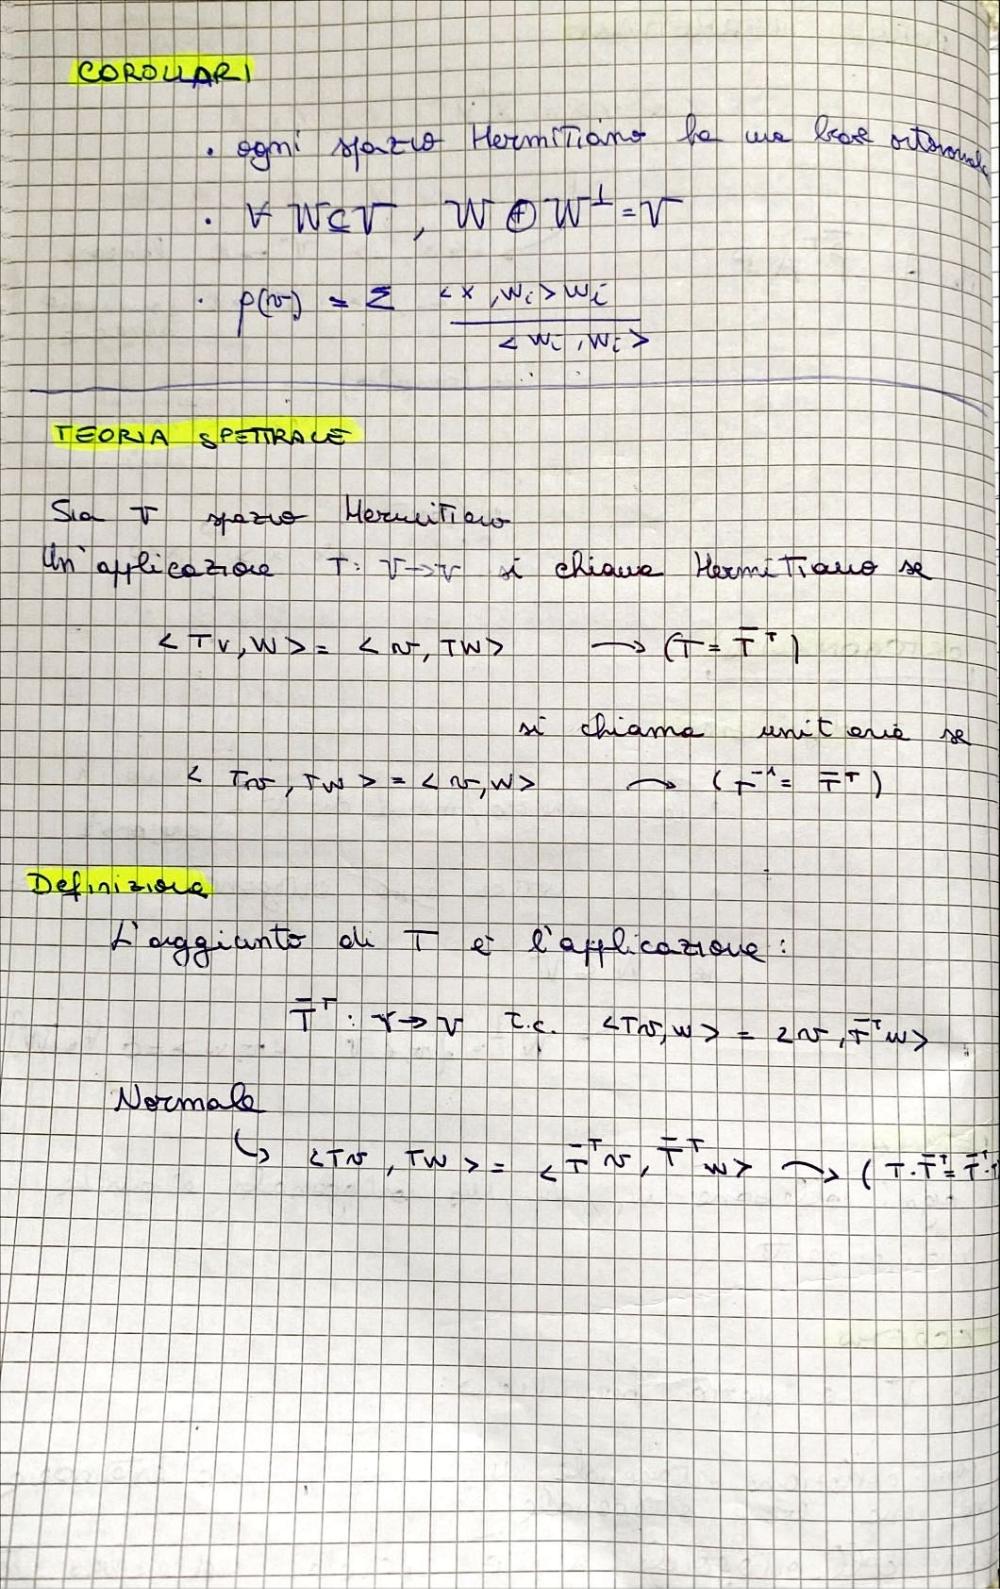 COROLLARI
• ogni spazio Hermitiano ha una base ortonormale
• ∀ W⊆V, W ⊕ W^⊥ = V
• p(v) = Σ <x, wi> wi / <wi, wi>
TEORIA SPETTRALE
Sia V spazio Hermitiano
Un'applicazione T: V→V si chiama Hermitiano se
<Tv, w> = <v, Tw> → (T = T̄ᵀ)
si chiama unitaria se
<Tv, Tw> = <v, w> → (T⁻¹ = T̄ᵀ)
Definizione
L'aggiunto di T è l'applicazione:
T̄ᵀ: V→V t.c. <Tv, w> = <v, T̄ᵀw>
Normale
↳ <Tv, Tw> = <T̄ᵀv, T̄ᵀw> → (T·T̄ᵀ = T̄ᵀ·